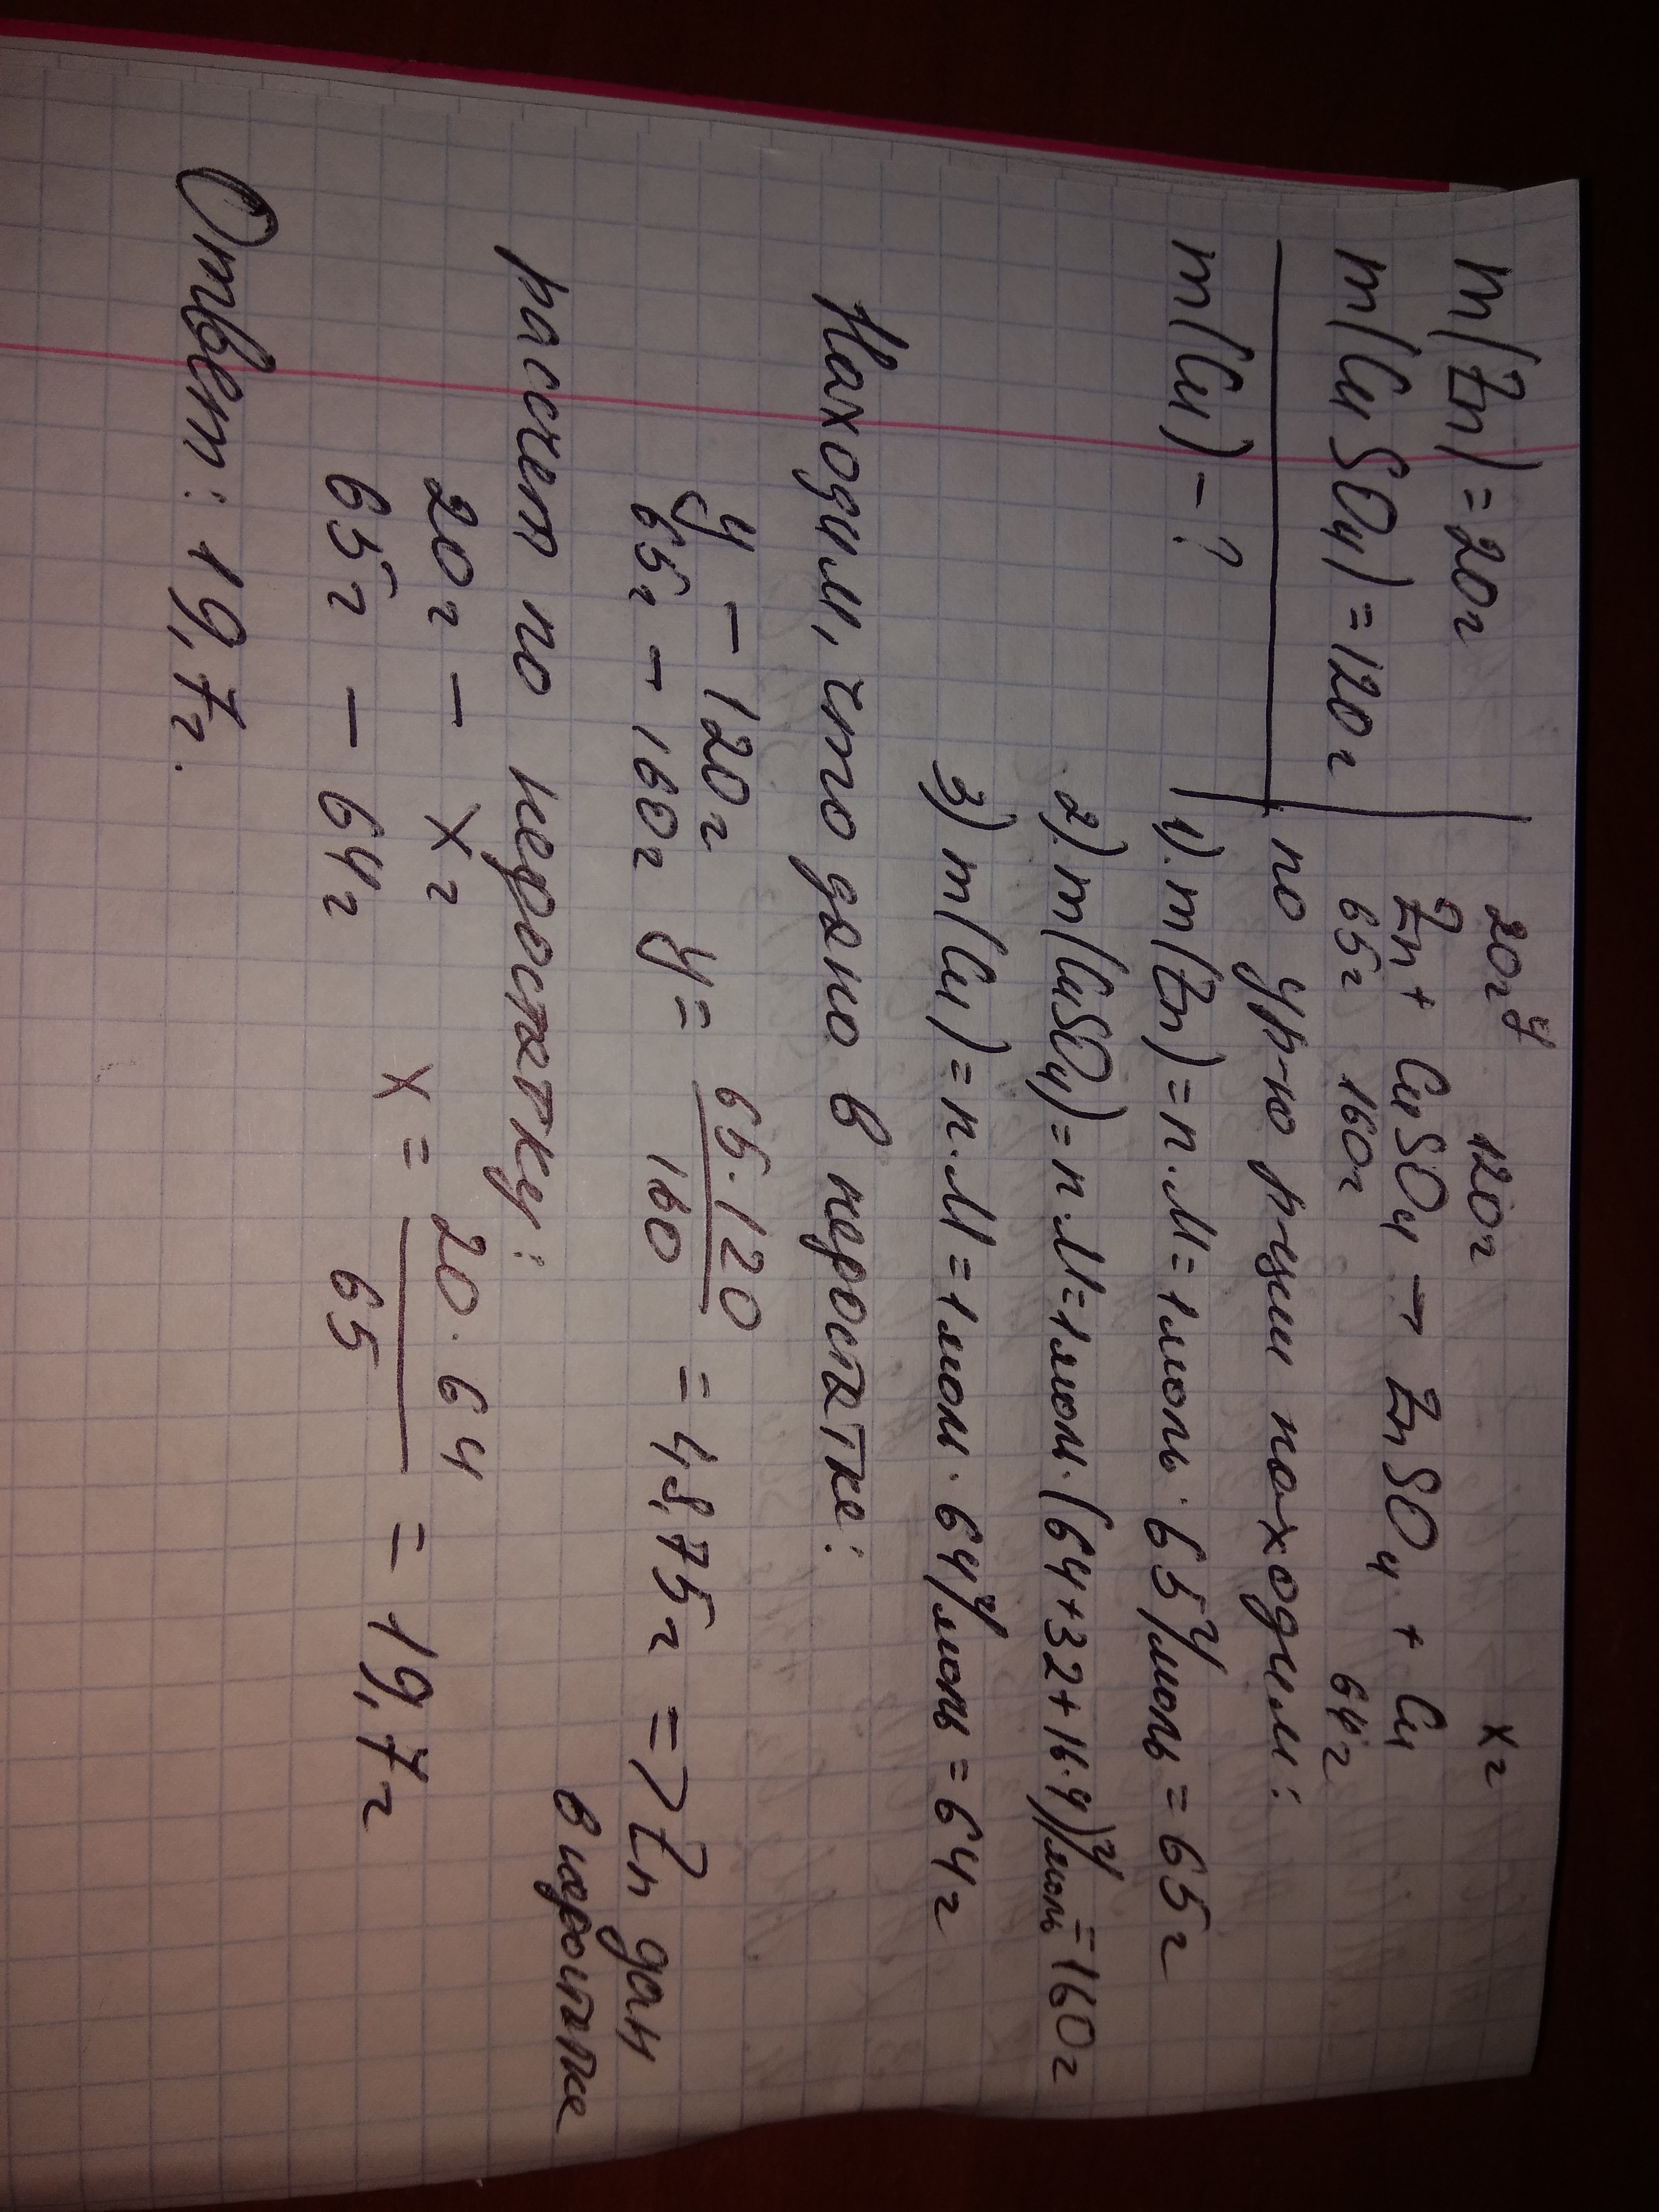 m(Zn) = 20г
m(CuSO₄) = 120г
m(Cu) – ?
20г y 120г xг
Zn + CuSO₄ → ZnSO₄ + Cu
65г 160г 64г
по ур-ю р-ции находим:
1). m(Zn) = n·M = 1моль·65г/моль = 65г
2). m(CuSO₄) = n·M = 1моль·(64+32+16·4)г/моль = 160г
3) m(Cu) = n·M = 1моль·64г/моль = 64г
Находим, что дано в недостатке:
y – 120г
65г – 160г y = 65·120/160 = 48,75г => Zn дан
в недостатке
расчет по недостатку:
20г – xг
65г – 64г x = 20·64/65 = 19,7г
Ответ: 19,7г.